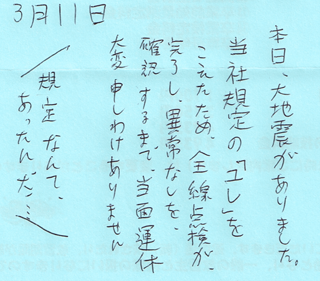 3月11日
本日、大地震がありました。
当社規定の「ユレ」を
こえたため、全線点検が、
完了し、異常なしを、
確認するまで、当面運休
大変申しわけありません
規定なんて、
あったんだ…ミ